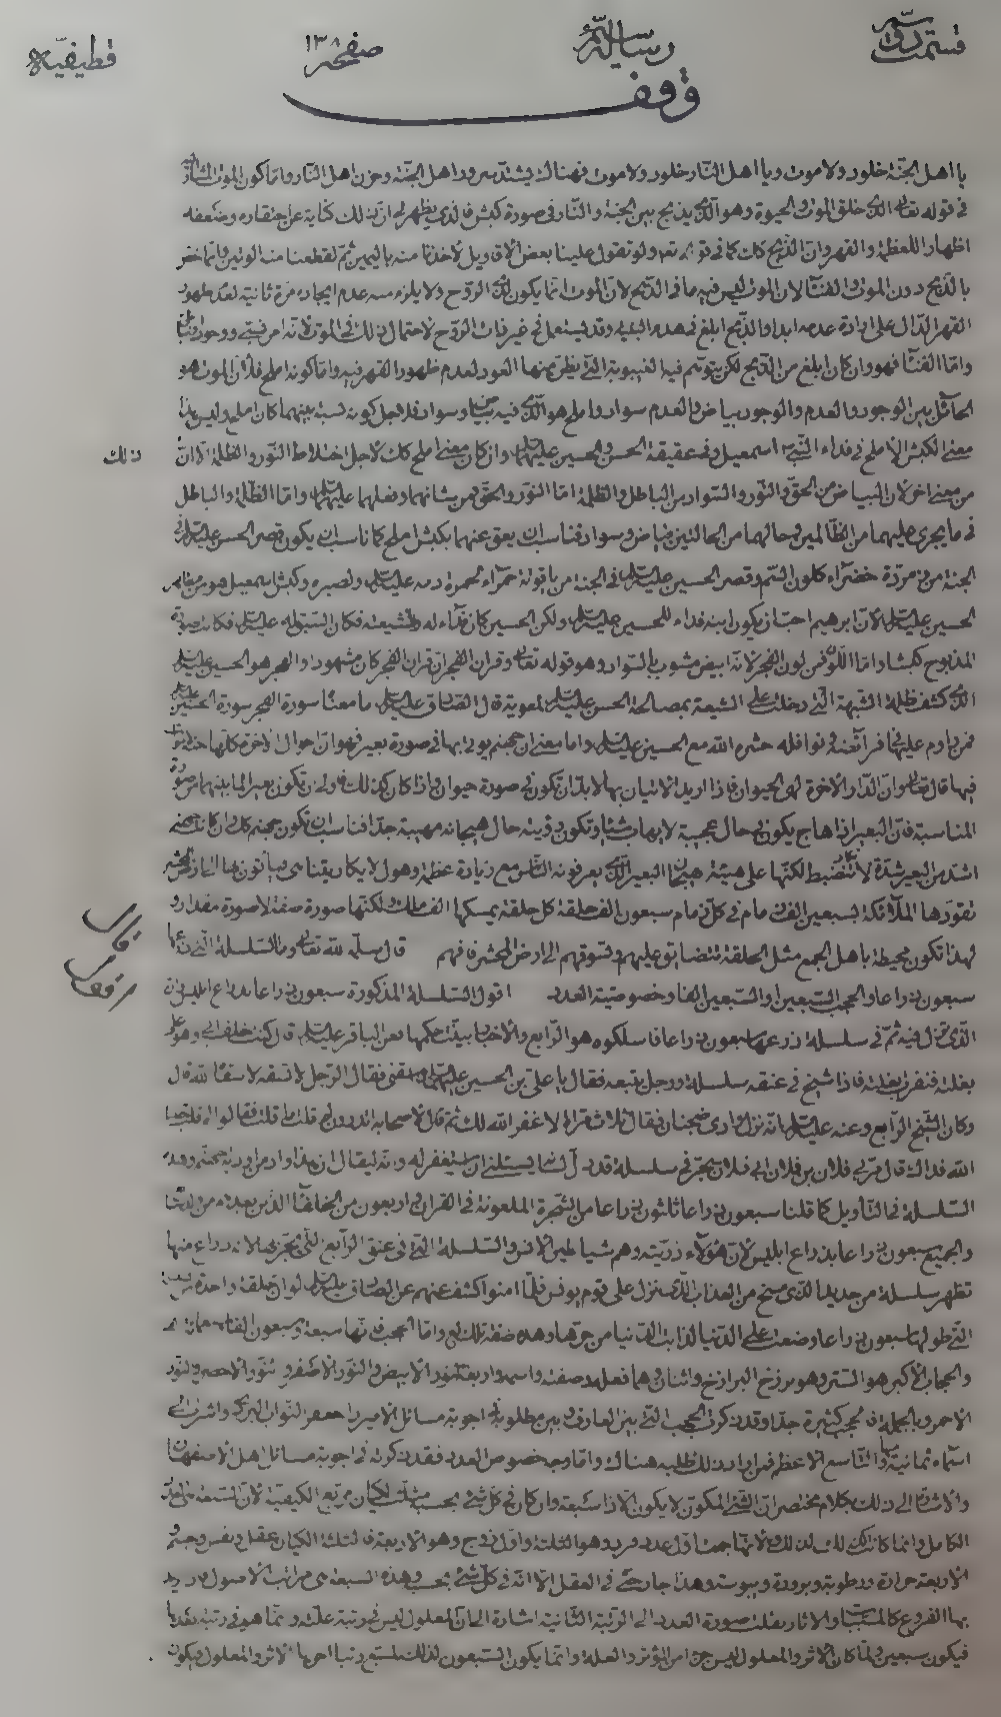 قسمت دوّم
رسالهٔ
صفحهٔ ١٣٨
قطیفیّه
وقف
یا اهل الجنّة خلود ولا موت ویا اهل النّار خلود ولا موت فهناك یشتد سرور اهل الجنّة وحزن اهل النّار وامّا كون الموت
فی قوله تعالی الذی خلق الموت والحیوة وهو الذی یذبح بین الجنة والنّار فی صورة كبش فالذی یظهر لی انّ ذلك كنایة عن حقاره وضعفه
اظهارا للعظمة والقهر وانّ الذّبح كان كما فی قوله تعالی ولو تقوّل علینا بعض الاقاویل لاخذنا منه بالیمین ثمّ لقطعنا منه الوتین وانّما خصّ
بالذّبح دون الموت والفناء لان الموت لیس فیه ما فی الذّبح لانّ الموت انّما یكون الروّح ولا یلزم منه عدم ایجاده مرّة ثانیة
القهر الدّال علی ارادة عدمه ابدا والذّبح ابلغ فی هدم البنیة وقد یستعمل فی غیر فیات الروّح لاحتمال ذلك فی الموت لانه امر
وامّا الفناء فهو وان كان ابلغ من الذّبح لكن یتوهّم فیه الغیبوبة الّتی یظنّ منها العود لعدم ظهور القهر فیه وامّا كونه املح فلان الموت هو
الحائل بین الوجود والعدم والوجود بیاض والعدم سواد واملح هو الّذی فیه بیاض وسواد فلاجل كونه نسبة بینهما كان املح ولیس هذا
معنی الكبش الاملح فی فداء اسمعیل وفی عقیقة الحسن والحسین علیهما السّلام وان كان معنی املح كان لاجل اختلاط النّور والظلمة الّا انّ
ذلك
من معنی اخر لان البیاض من الحقّ والنّور والسّواد من الباطل والظلمة امّا النّور والحقّ فمن شانهما وفعلهما علیهما السّلام وامّا الظلمة والباطل
فی ما یجری علیهما من الظّالمین وحالهما من الحالتین بیاض وسواد فناسب ان یعق عنهما بكبش املح كما ناسب ان یكون قصر الحسن علیه السّلام فی
الجنة من زمردة خضراء كلون السّم وقصر الحسین علیه السّلام فی الجنة من یاقوتة حمراء لحمرة دمه علیه السّلام وكبش اسمعیل هو من
الحسین علیه السّلام لانّ ابرهیم احبّ ان یكون ابنه فداء للحسین علیه السّلام ولكن الحسین كان فداء له ولشیعته
المذبوح كبشا وامّا اللّون فمن لون الفجر لانه ابیض مشوب بالسّواد وهو قوله تعالی وقران الفجر انّ قران الفجر كان مشهودا والفجر هو الحسین علیه السّلام
الّذی كشف ظلمة الشّبهة الّتی دخلت علی الشیعة بمصالحة الحسن علیه السّلام لمعویة قال الصّادق علیه السّلام ما معناه سورة الفجر سورة الحسین
فمن داوم علیها فی فرائضه ونوافله حشره الله مع الحسین علیه السّلام واما معنی ان جهنم یؤتی بها فی صورة بعیر فهو انّ احوال الاخرة كلّها حیوة
فیها قال تعالی وانّ الدّار الاخرة لهی الحیوان فاذا ارید الاتیان بها لا بدّ ان تكون فی صورة حیوان واذا كان كذلك
المناسبة فانّ البعیر اذا هاج یكون فی حال عجیبة وتكون رؤیته حال هیجانه مهیبة جدّا فناسب ان تكون جهنم كذلك وان كانت جهنم
اشد من البعیر شدّة لا تنضبط لكنّها علی هیئة البعیر الّذی یعرفونه النّاس مع زیادة عظم وهول لا یكاد یتناهی
تقودها الملائكة بسبعین الف زمام فی كلّ زمام سبعون الف حلقة كل حلقة یمسكها الف ملك لكنّها صورة صفة لا صورة مقدار و
لهذا تكون محیطة باهل الجمع مثل الحلقة تتضایق علیهم وتسوقهم الی ارض المحشر فافهم قال سلّمه الله تعالی وما السّلسلة الّتی ذرعها
قال
سبعون ذراعا والحجب السّبعین او السّبعین الفا وخصوصیّة العدد اقول السّلسلة المذكورة سبعون ذراعا بذراع ابلیس
اقول
الّذی نزل فیه ثمّ فی سلسلة ذرعها سبعون ذراعا فاسلكوه هو الرّابع والاخبار بیّنت حكمها فعن الباقر علیه السّلام قال كنت خلف ابی وهو علی
بغلته فنفرت بغلته فاذا شیخ فی عنقه سلسلة ورجل یتبعه فقال یا علیّ بن الحسین علیهما السّلام اسقنی فقال الرّجل لا تسقه لا سقاه الله قال
وكان الشّیخ الرّابع وعنه علیه السّلام انّه نزل وادی ضجنان فقال ثلاث مرّات لا غفر الله لك ثم قال لاصحابه اتدرون لم قلت ما قلت فقالوا لم قلت جعلنا
الله فداك قال مرّ بی فلان بن فلان یجرّ فی سلسلة قد یسئلنی ان استغفر له وانه لیقال ان هذا واد من اودیة جهنّم
السّلسلة فی التّأویل كما قلنا سبعون ذراعا ثلثون ذراعا من الشّجرة الملعونة فی القران واربعون من الخلفاء الذین بعدهم من
والجمیع سبعون ذراعا بذراع ابلیس لانّ هؤلاء ذرّیته وهم شیاطین الانس والسّلسلة الّتی فی عنق الرّابع
تظهر سلسلة من حدید الّذی مسخ من العذاب الّذی نزل علی قوم یونس فلمّا امنوا كشف عنهم عن الصّادق علیه السّلام لو ان حلقة واحدة من
الّتی طولها سبعون ذراعا وضعت علی الدّنیا لذابت الدّنیا من حرّها وهذه صفة تلك وامّا الحجب فانّها سبعة وسبعون الفا
والحجاب الاكبر هو السّتر وهو برزخ البرازخ واثنان هما فعله وصفته واربعة النّور الابیض والنّور الاصفر والنّور الاخضر والنّور
الاحمر وبالجملة فالحجب كثیرة جدّا وقد ذكرت الحجب الّتی بین العارف وبین مطلوبه فی اجوبة مسائل الامیر جعفر النّواب
اسماء ثمانیة منها والتّاسع الاعظم فمن اراد ذلك طلبه هناك وامّا وجه خصوص العدد فقد ذكرته فی اجوبة مسائل اهل الاصفهان
والاشارة الی ذلك بكلام مختصر انّ الشّئ المكوّن لا یكون الّا ذا سبعة وان كان كل شئ بحسبه مثلّث الكیان مربّع الكیفیّة لانّ السّبعة هی العدد
الكامل وانّما كانت كذلك لانّها جمعت اوّل عدد فرد وهو الثلثة واوّل زوج وهو الاربعة فالثلثة الكیان عقل ونفس وجسم و
الاربعة حرارة ورطوبة وبرودة ویبوسة وهذا جار حتّی فی العقل الّا انّه فی كلّ شئ بحسبه وهذه السبعة هی مراتب الاصول
بها الفروع كالمسبّبات والاثار نقلت صورة العدد الی الرّتبة الثّانیة اشارة الی انّ المعلول لیس فی رتبة علّته وانّما هو فی رتبة بعدها
فیكون سبعین ولمّا كان الاثر والمعلول لیس جزءا من المؤثر والعلة وانّما یكون السّبعون